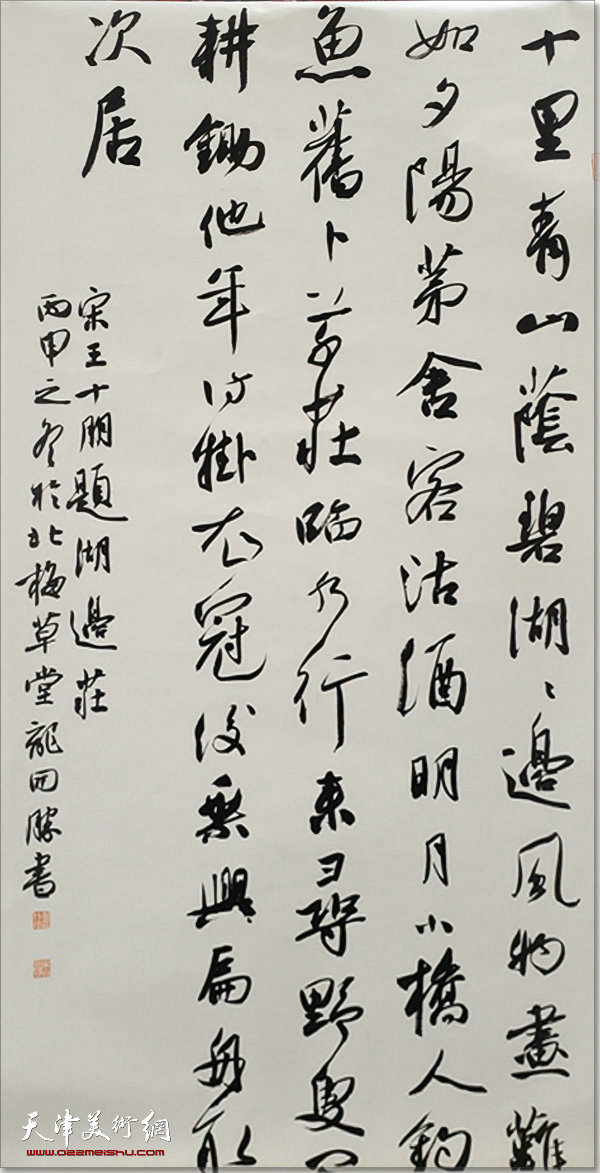 十里青山蔭碧湖〻邊風物畫難
如夕陽茅舍客沽酒明月小橋人釣
魚舊卜草莊臨水竹来尋野叟问
耕鋤他年待掛衣冠後乘興扁舟取
次居
宋王十朋題湖邊莊
丙申之冬於北梅草堂龍書
天津美術網
www.022meishu.com